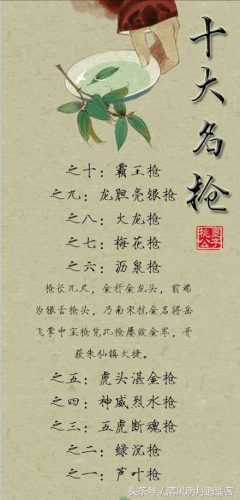 十大名枪
之十：霸王枪
之九：龙胆亮银枪
之八：火龙枪
之七：梅花枪
之六：沥泉枪
枪长九尺，金杆金龙头，前部
为银舌枪头，乃南宋抗金名将岳
飞掌中宝枪凭此枪屡败金军，并
获朱仙镇大捷。
之五：虎头湛金枪
之四：神威烈水枪
之三：五虎断魂枪
之二：绿沉枪
之一：芦叶枪